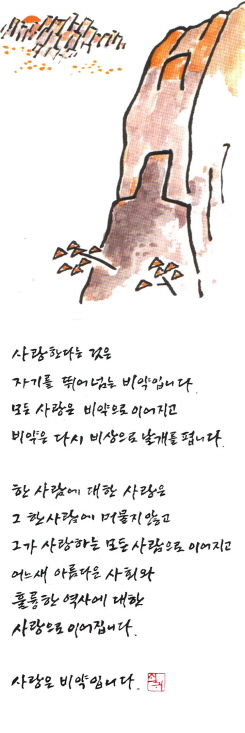 사랑한다는 것은
자기를 뛰어넘는 비약입니다.
모든 사랑은 비약으로 이어지고
비약은 다시 비상으로 날개를 폅니다.
한 사람에 대한 사랑은
그 한사람에 머물지 않고
그가 사랑하는 모든 사람으로 이어지고
어느새 아름다운 사회와
훌륭한 역사에 대한
사랑으로 이어집니다.
사랑은 비약입니다.